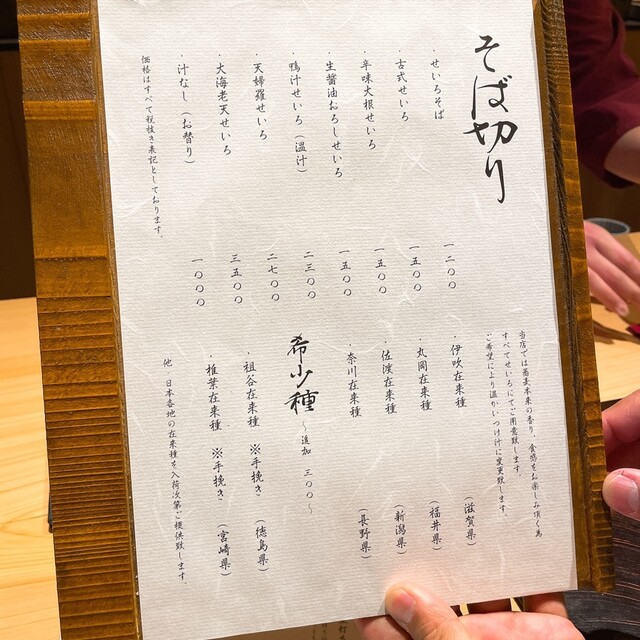 そば切り
・せいろそば 一二〇〇
・古式せいろ 一五〇〇
・辛味大根せいろ 一五〇〇
・生醤油おろしせいろ 一五〇〇
・鴨汁せいろ(温汁) 二三〇〇
・天婦羅せいろ 二七〇〇
・大海老天せいろ 三五〇〇
・汁なし(お替り) 一〇〇〇
価格はすべて税抜き表記としております。
当店では蕎麦本来の香り、食感をお楽しみ頂く為
すべてせいろにてご用意致します。
ご希望により温かいつけ汁に変更致します。
・伊吹在来種 (滋賀県)
・丸岡在来種 (福井県)
・佐渡在来種 (新潟県)
・奈川在来種 (長野県)
希少種 〜追加 三〇〇〜
・祖谷在来種 ※手挽き (徳島県)
・椎葉在来種 ※手挽き (宮崎県)
他、日本各地の在来種を入荷次第ご提供致します。